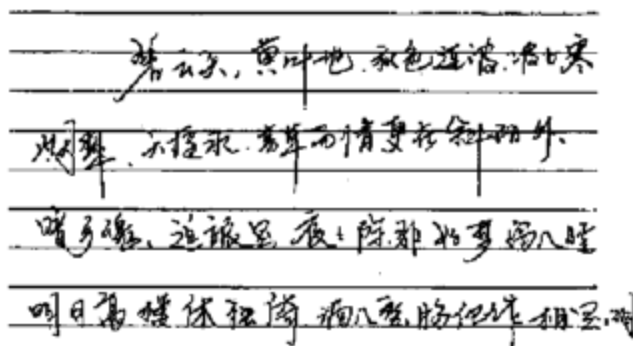 碧云天,黄叶地.秋色连波.波上寒
烟翠.天接水.芳草无情更在斜阳外.
暗乡魂,追旅思.夜夜除非好梦留人睡
明日高楼休独倚.酒入愁肠化作相思泪